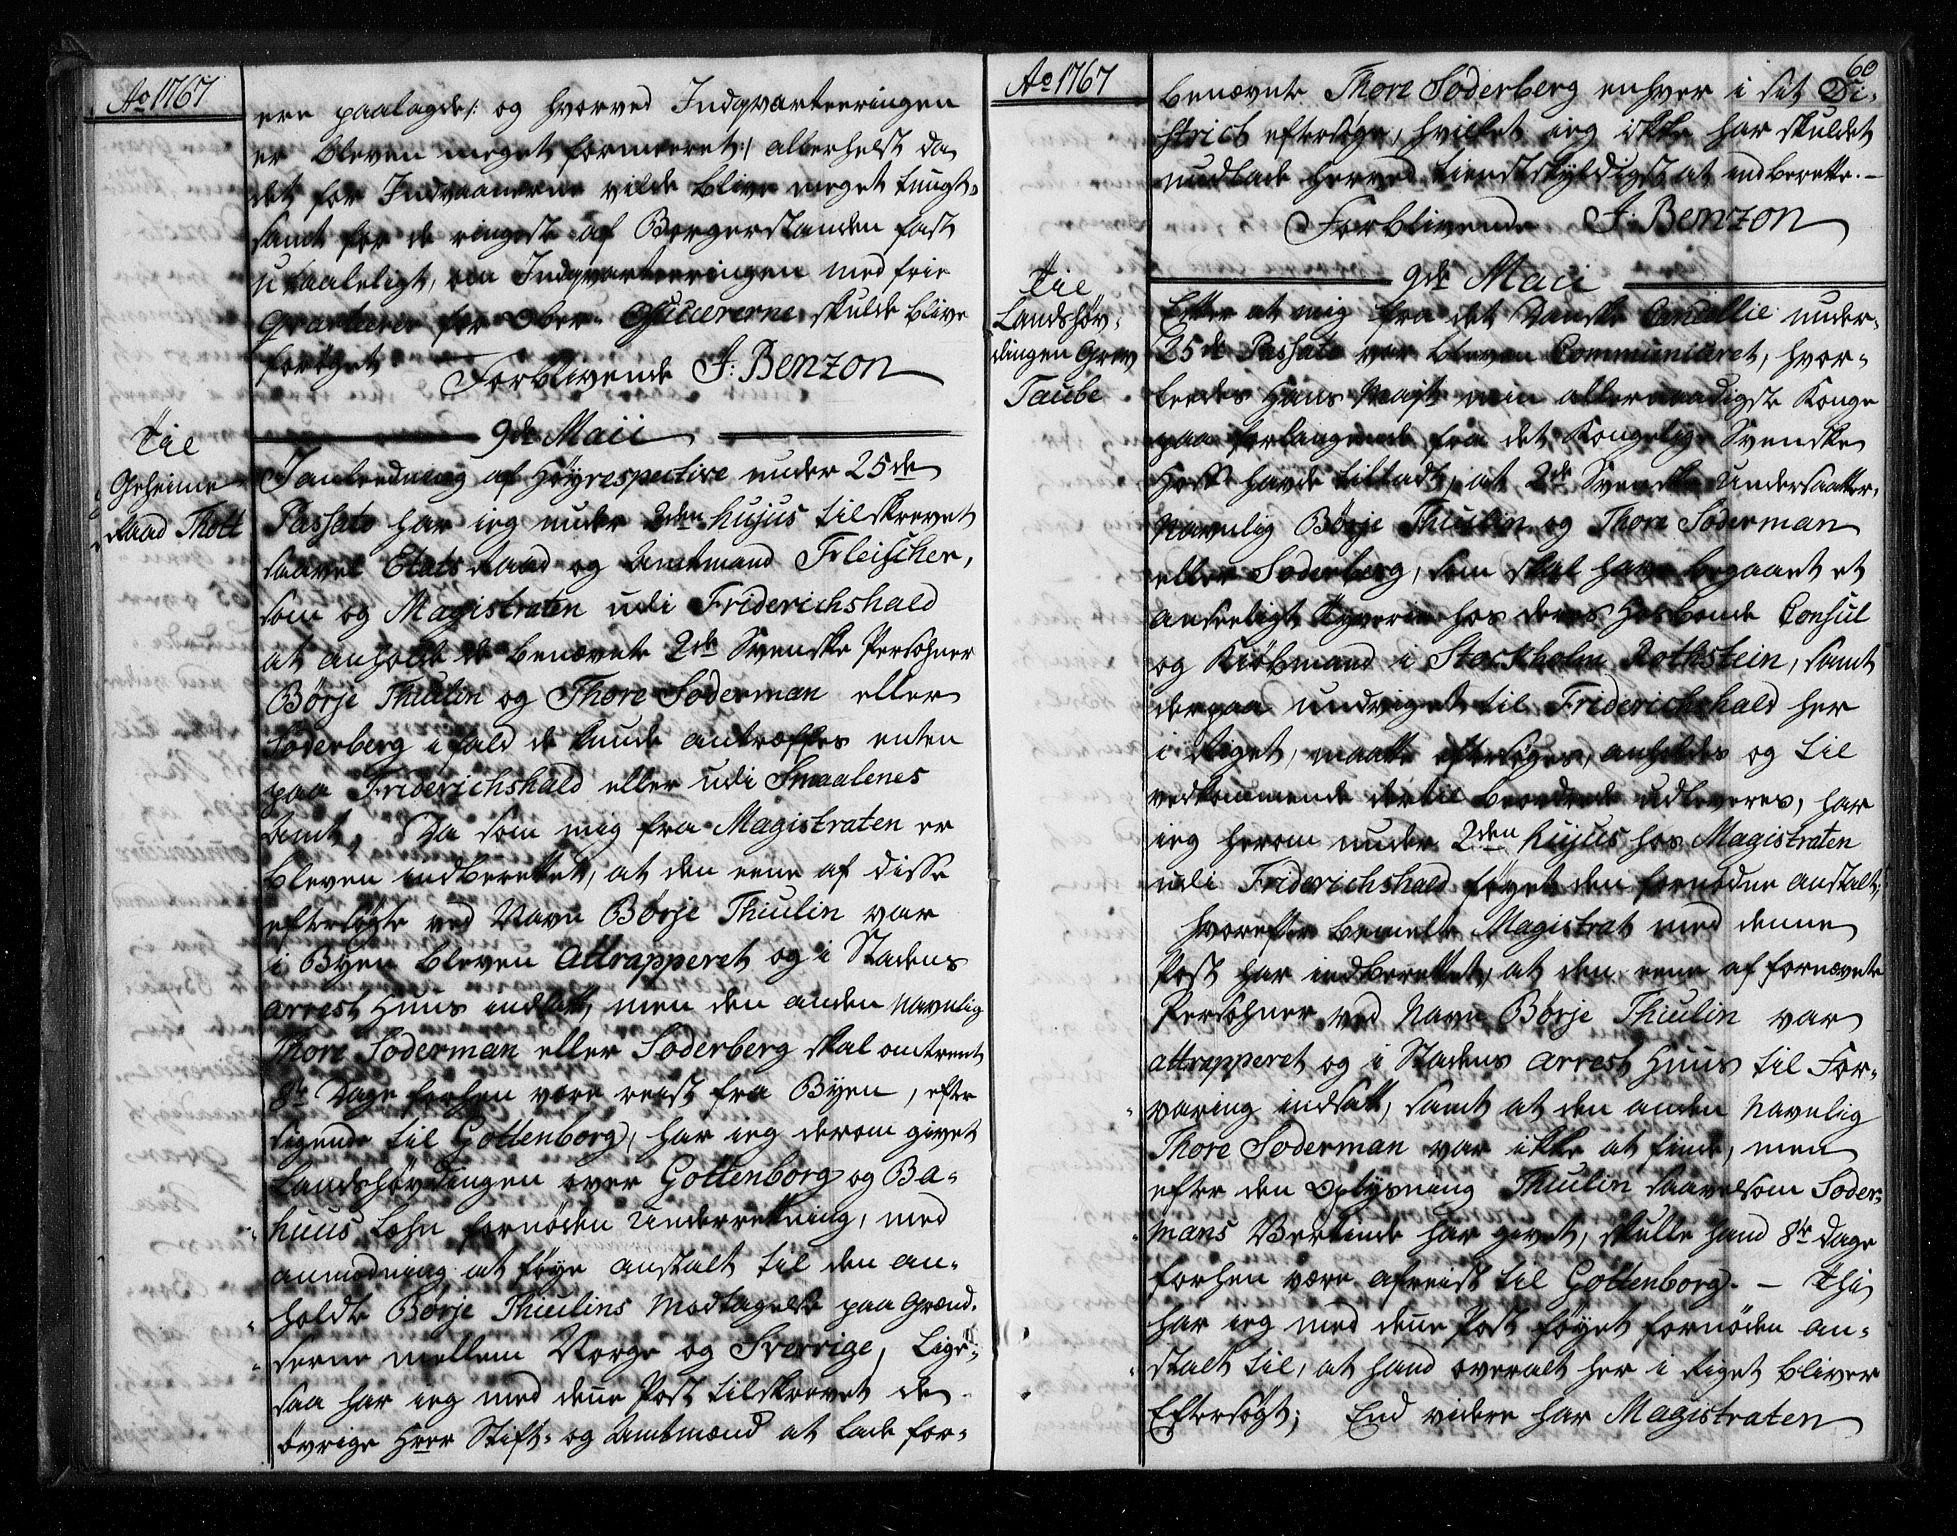 Ao 1767
ere paalagde /: og hvorved Indqvarteeringen
er bleven meget formeeret :/ allerhelst da
det for Indvaanerne vilde blive meget tungt-
samt for de ringeste af Borgerstanden fast
utaaleligt, om Indqvarteeringen med frie
Qvarterer for Ober- Officiererne skulde blive
forøget Forblivende J: Benzon
9de Maii
Til
Geheime-
Raad Thott
I anledning af Høyrespective under 25de
Passato har ieg under 2den hujus tilskrevet
saavel Etats Raad og Amtmand Fleischer,
som og Magistraten udi Friderichshald
at anholde de benævnte 2de Svenske Persohner
Børje Thiulin og Thore Soderman eller
Soderberg i fald de kunde antræffes enten
paa Friderichshald eller udi Smaalenes
Amt, Da som mig fra Magistraten er
bleven indberettet, at den eene af disse
eftersøgte ved Navn Børje Thiulin var
i Byen bleven attrapperet og i Stadens
arrest Huus indsatt, men den anden navnlig
Thore Soderman eller Soderberg skal omtrent
8te Dage forhen være reist fra Byen, efter
sigende til Gottenborg, har ieg derom givet
Landshøvdingen over Gottenborg og Ba-
huus Lehn fornøden Underretning, med
anmodning at føye anstalt til den an-
holdte Børje Thiulins Modtagelse paa Grænd-
serne mellem Norge og Sverrige, Lige-
saa har ieg med denne Post tilskrevet de
øvrige Hrer Stift- og Amtmænd at lade for-
Ao 1767
60
benævnte Thore Soderberg enhver i sit Di-
strict eftersøge, hvilket ieg ikke har skuldet
undlade herved tienstskyldigst at indberette. -
Forblivende J: Benzon
9de Maii
Til
Landshøv-
dingen Grev
Taube
Efter at mig fra det Danske Cancellie under
25de Passato var bleven Communiceret, hvor-
ledes Hans Mayst min allernaadigste Konge
paa forlangende fra det Kongelige Svenske
Hoff havde tilladt, at 2de Svenske Undersaatter,
navnlig Børje Thiulin og Thore Soderman
eller Soderberg, som skal have begaaet et
anseeligt Tyverie hos deres Hosbonde Consul
og Kiøbmand i Stockholm Rothstein, samt
derpaa undviget til Friderichshald her
i Riget, maatte eftersøges, anholdes og til
vedkommende dertil beordrede udleveres, har
ieg herom under 2den hujus hos Magistraten
udi Friderichshald føyet den fornødne anstalt;
hvorefter bemelte Magistrat med denne
Post har indberettet, at den eene af fornævnte
Persohner ved Navn Børje Thiulin var
attrapperet og i Stadens arrest Huus til For-
varing indsatt, samt at den anden Navnlig
Thore Soderman var ikke at finde, men
efter den Oplysning Thiulin saavelsom Soder-
mans Vertinde har givet, skulle hand 8te Dage
forhen være afreist til Gottenborg. - Thi
har ieg med denne Post føyet fornøden an-
stalt til, at hand overalt her i Riget bliver
Eftersøgt; End videre har Magistraten